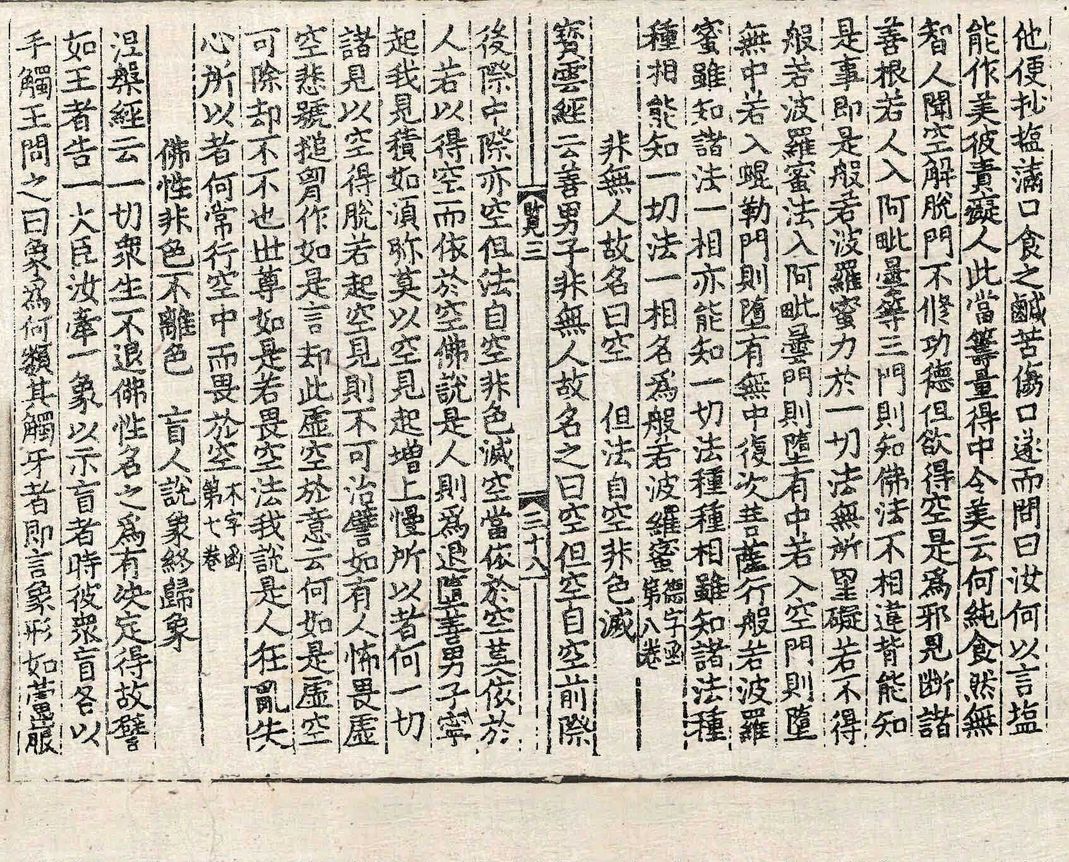 他便抄塩滿口食之鹹苦傷口遂而問曰汝何以言塩
能作美彼責癡人此當籌量得中令美云何純食然無
智人聞空解脫門不修功德但欲得空是爲邪見斷諸
善根若人入阿毗曇等三門則知佛法不相違背能知
是事即是般若波羅蜜力於一切法無所罣礙若不得
般若波羅蜜法入阿毗曇門則墮有中若入空門則墮
無中若入蜫勒門則墮有無中復次菩薩行般若波羅
蜜雖知諸法一相亦能知一切法種種相雖知諸法種
種相能知一切法一相名爲般若波羅蜜 德字函第八卷
非無人故名曰空 但法自空非色滅
寶雲經云善男子非無人故名之曰空但空自空前際
覽三 三十八
後際中際亦空但法自空非色滅空當依於空莫依於
人若以得空而依於空佛說是人則爲退墮善男子寧
起我見積如湏弥莫以空見起增上慢所以者何一切
諸見以空得脫若起空見則不可治譬如有人怖畏虛
空悲號搥胷作如是言却此虛空於意云何如是虛空
可除却不不也世尊如是若畏空法我說是人狂亂失
心所以者何常行空中而畏於空 木字函第七卷
佛性非色不離色 盲人說象終歸象
涅槃經云一切衆生不退佛性名之爲有决定得故譬
如王者告一大臣汝牽一象以示盲者時彼衆盲各以
手觸王問之曰象爲何類其觸牙者即言象形如蘆菔